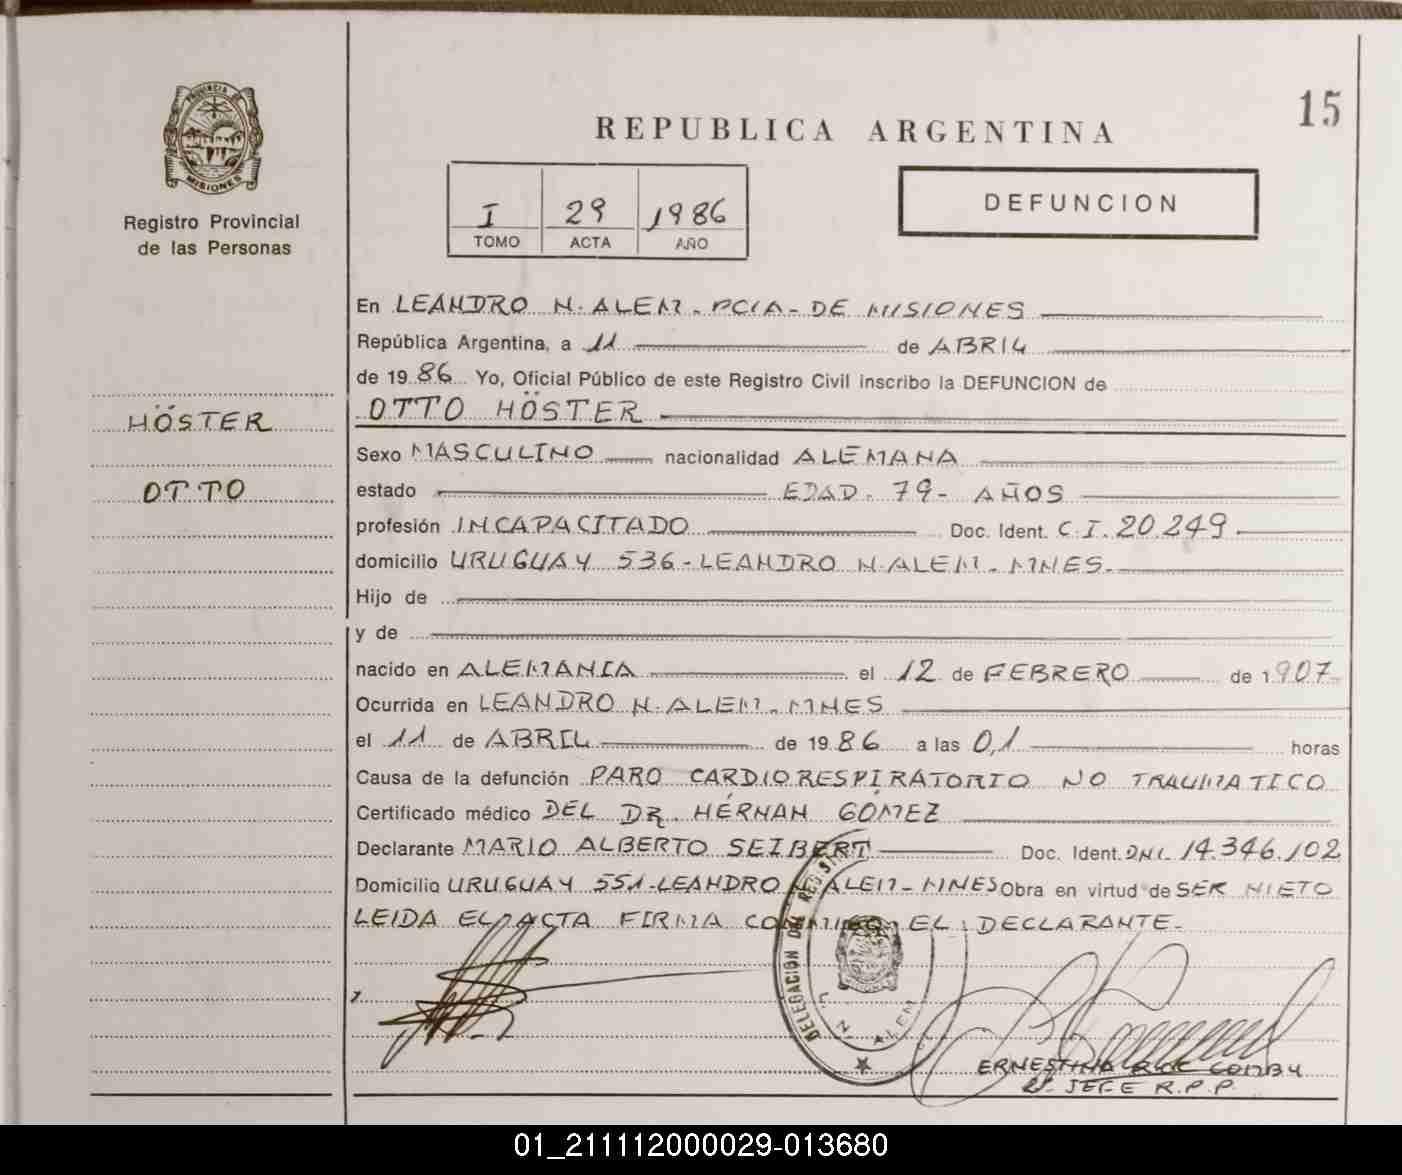 PROVINCIA DE
MISIONES
Registro Provincial
de las Personas
HÖSTER
OTTO
15
REPUBLICA ARGENTINA
I 29 1986
TOMO ACTA AÑO
DEFUNCION
En LEANDRO N. ALEM - PCIA - DE MISIONES
República Argentina, a 11 de ABRIL
de 1986 Yo, Oficial Público de este Registro Civil inscribo la DEFUNCION de
OTTO HÖSTER
Sexo MASCULINO nacionalidad ALEMANA
estado EDAD - 79 - AÑOS
profesión INCAPACITADO Doc. Ident. C.I. 20.249
domicilio URUGUAY 536 - LEANDRO N. ALEM - MNES.
Hijo de
y de
nacido en ALEMANIA el 12 de FEBRERO de 1907
Ocurrida en LEANDRO N. ALEM - MNES
el 11 de ABRIL de 1986 a las 0,1 horas
Causa de la defunción PARO CARDIORESPIRATORIO NO TRAUMATICO
Certificado médico DEL DR. HÉRNAN GOMEZ
Declarante MARIO ALBERTO SEIBERT Doc. Ident. DNI. 14.346.102
Domicilio URUGUAY 551 - LEANDRO N. ALEM - MNES Obra en virtud de SER NIETO
LEIDA EL ACTA FIRMA CONMIGO EL DECLARANTE -
DELEGACION DEL REGISTRO
L. N. ALEM
ERNESTINA
2º JEFE R.P.P.
01_211112000029-013680